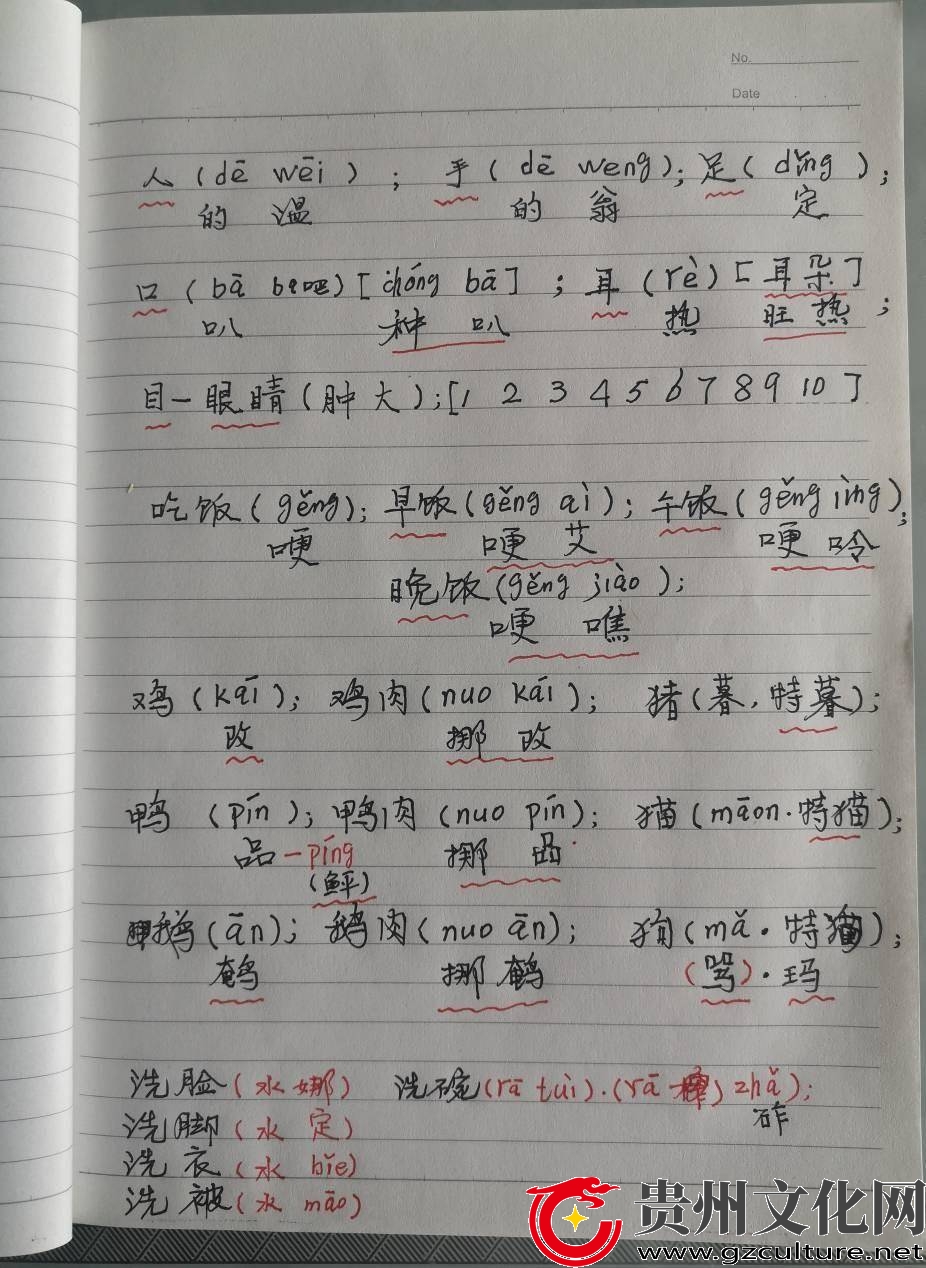 No.
Date
人（dē wēi）； 手（dē weng）；足（dǐng）；
的 温 的 翁 定
口（bā ba吧）[chóng bā]；耳（rè）[耳朵]；
叭 种 叭 热 旺 热
目一眼睛（肿大）；[1 2 3 4 5 6 7 8 9 10]
吃饭（gěng）；早饭（gěng ai）；午饭（gěng ìng）；
哽 哽 艾 哽 呤
晚饭（gěng jiào）；
哽 噍
鸡（kāī）；鸡肉（nuo kāi）；猪（暮，特暮）；
改 挪 改
鸭（pín）；鸭肉（nuo pín）；猫（māon·特猫）；
品－píng 挪 品
（鲆）
鹅（ān）；鹅肉（nuo ān）；狗（mǎ·特）；
鹌 挪 鹌 （骂）·玛
洗脸（水 娜） 洗碗（rā tuì）.（rā zhǎ）；
洗脚（水 定） 砟
洗衣（水 bǐe）
洗被（水 māo）
贵州文化网
www.gzculture.net